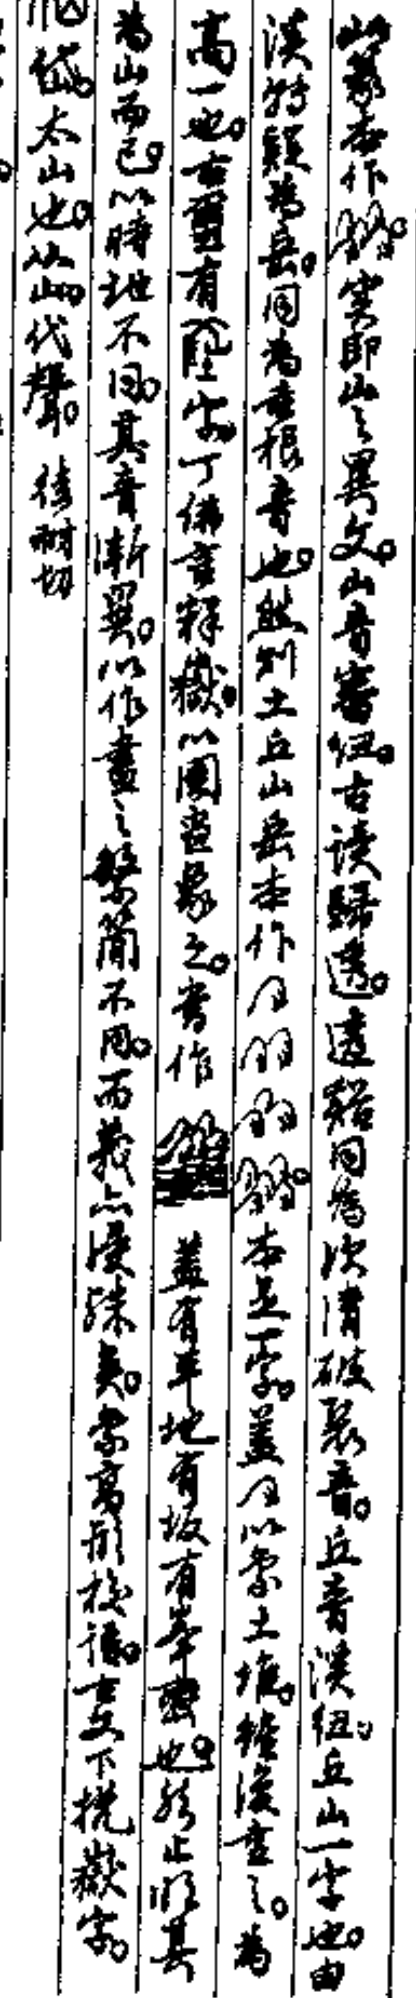 此篆本作實即山之異文。山音審紐。古讀歸透。透谿同為次清破裂音。丘音溪紐。丘山一字也。由
溪轉疑為岳。同為舌根音也。然則土丘山岳本作本是一字。蓋以象土堆。
高一也。古璽有字。丁佛言釋嶽。以圖畫象之。當作 蓋有平地有坂有峯巒也。止
為山而已。以時地不同。其音漸異。以作畫之繁簡不同。而義亦漫殊矣。象高形校語。古文下挩嶽字。
岱太山也。从山。代聲 徒耐切